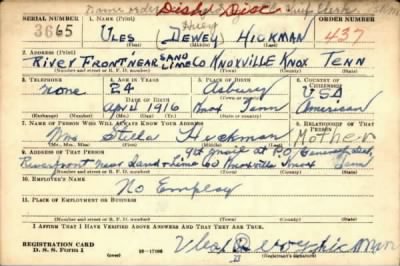 Name order Disk Disc Clerk
SERIAL NUMBER 1. NAME (Print) Huey ORDER NUMBER
3665 ULES (DEWEY) HICKMAN 437
(First) (Middle) (Last)
2. ADDRESS (Print)
RIVER FRONT NEAR SAND LIME CO KNOXVILLE KNOX TENN
(Number and street or R. F. D. number) (Town) (County) (State)
3. TELEPHONE 4. AGE IN YEARS 5. PLACE OF BIRTH 6. COUNTRY OF CITIZENSHIP
none 24 Asbury USA
DATE OF BIRTH
April 1916 Knox Tenn American
7. NAME OF PERSON WHO WILL ALWAYS KNOW YOUR ADDRESS 8. RELATIONSHIP OF THAT PERSON
Mrs Stella Hickman Mother
9. ADDRESS OF THAT PERSON
Get mail at P.O. General
Riverfront near Sand & Lime Co Knoxville Knox Tenn
(Number and street or R. F. D. number) (Town) (County) (State)
10. EMPLOYER'S NAME
No Employ
11. PLACE OF EMPLOYMENT OR BUSINESS
(Number and street or R. F. D. number) (Town) (County) (State)
I AFFIRM THAT I HAVE VERIFIED ABOVE ANSWERS AND THAT THEY ARE TRUE.
REGISTRATION CARD
D. S. S. Form 1
(Registrant's signature)